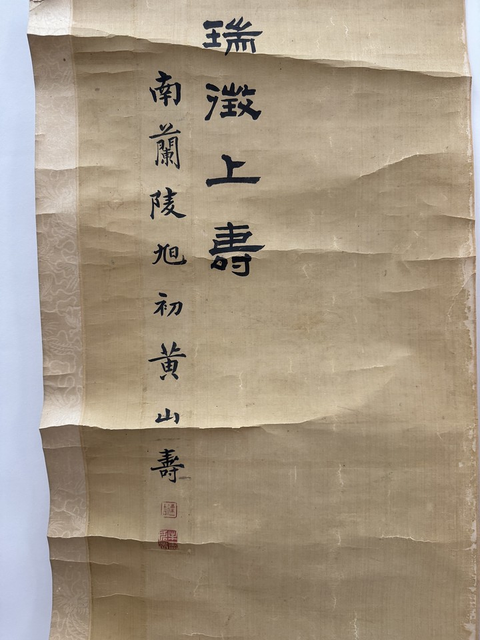 瑞徵上壽
南蘭陵旭初黃山壽